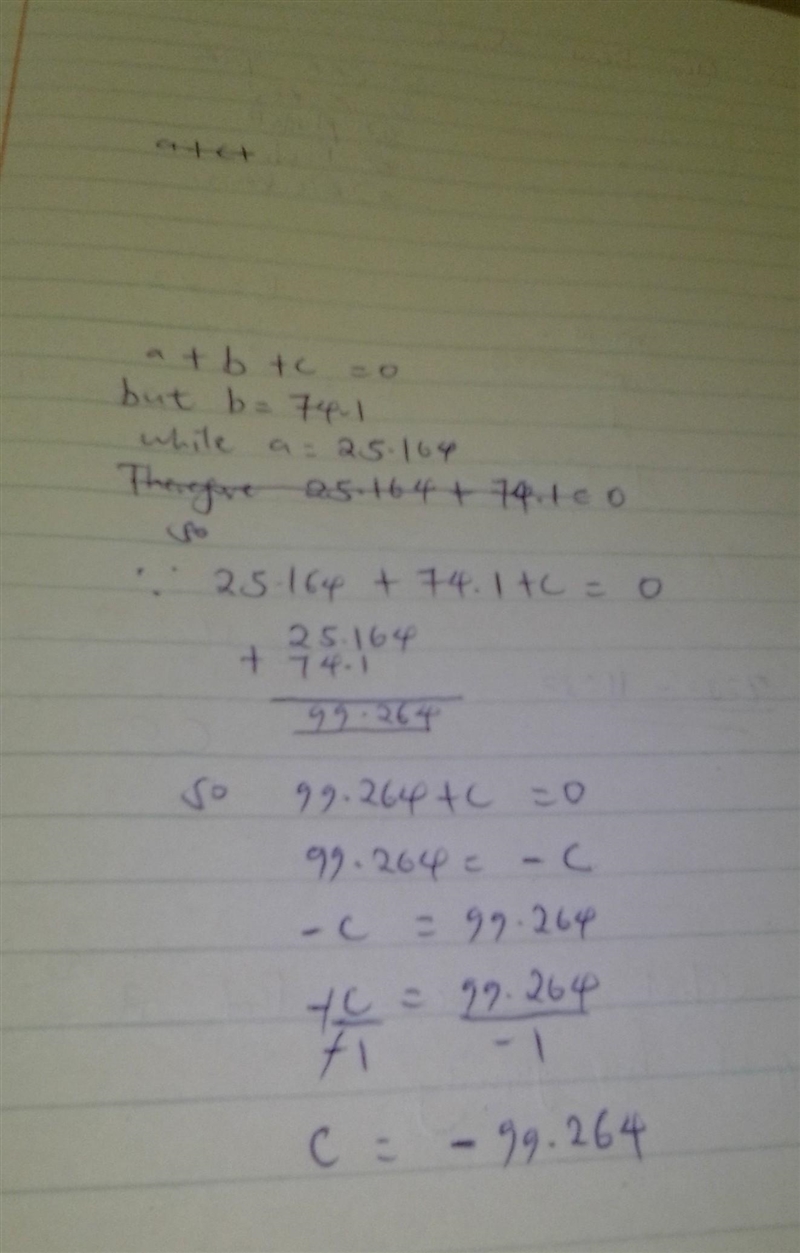 a+c+
a + b + c = 0
but b = 74.1
while a = 25.164
Therefore 25.164 + 74.1 = 0
so
∵ 25.164 + 74.1 + c = 0
25.164
+ 74.1
99.264
so 99.264 + c = 0
99.264 = - c
- c = 99.264
-c/-1 = 99.264/-1
c = - 99.264